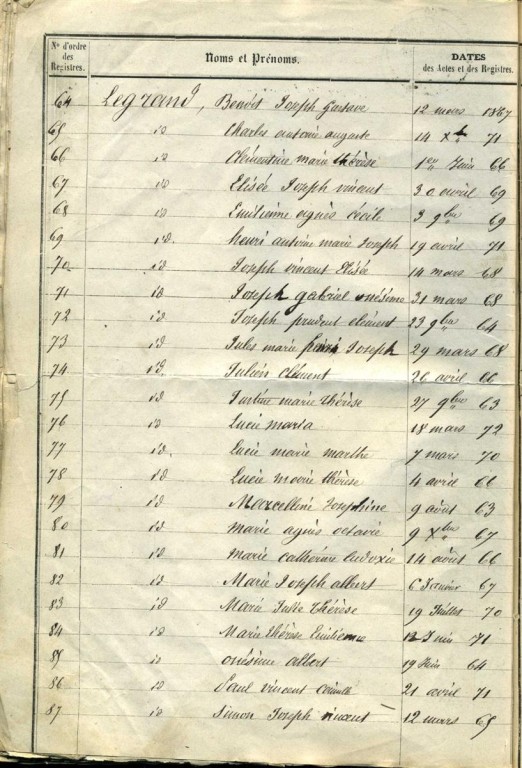 N° d'ordre des Registres. Noms et Prénoms. DATES des Actes et des Registres.
64 Legrand, Benoît Joseph Gustave 12 mars 1867
65 id Charles antoine auguste 14 Xbre 71
66 id Clémentine marie thérèse 1er Juin 66
67 id Elisée Joseph vincent 30 avril 69
68 id Emilienne agnès cécile 3 9bre 69
69 id. henri antoine marie Joseph 19 avril 71
70 id Joseph vincent Elisée 14 mars 68
71 id Joseph gabriel onésime 31 mars 68
72 id Joseph prudent clément 23 9bre 64
73 id Jules marie henri Joseph 29 mars 68
74 id. Julien clément 26 avril 66
75 id marie thérèse 27 9bre 63
76 id Lucie maria 18 mars 72
77 id. Lucie marie marthe 7 mars 70
78 id Lucie marie thérèse 4 avril 66
79 id Marcelline Josephine 9 août 63
80 id marie agnès octavie 9 Xbre 67
81 id marie catherine ludoxie 14 août 66
82 id Marie Joseph albert 6 Janvier 67
83 id Marie Julie thérèse 19 Juillet 70
84 id Marie thérèse Emilienne 12 Juin 71
85 id onésime albert 19 Juin 64
86 id Paul vincent camille 21 avril 71
87 id Simon Joseph vincent 12 mars 65